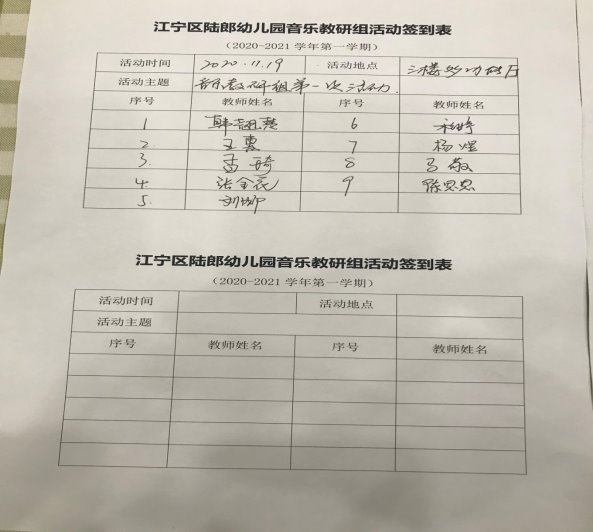 江宁区陆郎幼儿园音乐教研组活动签到表
（2020-2021 学年第一学期）
活动时间 2020.11.19 活动地点 三楼多功能厅
活动主题 音乐教研组第一次活动.
序号 教师姓名 序号 教师姓名
1 韩 6
2 王惠 7 杨煜
3. 孟琦 8 马敬
4. 张全花 9 陈思思
5. 刘娜
江宁区陆郎幼儿园音乐教研组活动签到表
（2020-2021 学年第一学期）
活动时间 活动地点
活动主题
序号 教师姓名 序号 教师姓名